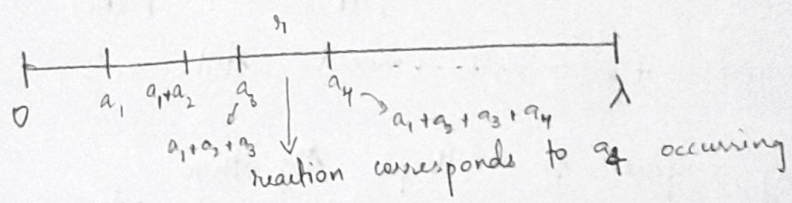 r₁
0 a₁ a₁+a₂ a₃ a₄ ...... λ
a₁+a₂+a₃ a₁+a₂+a₃+a₄
reaction corresponds to a₄ occurring